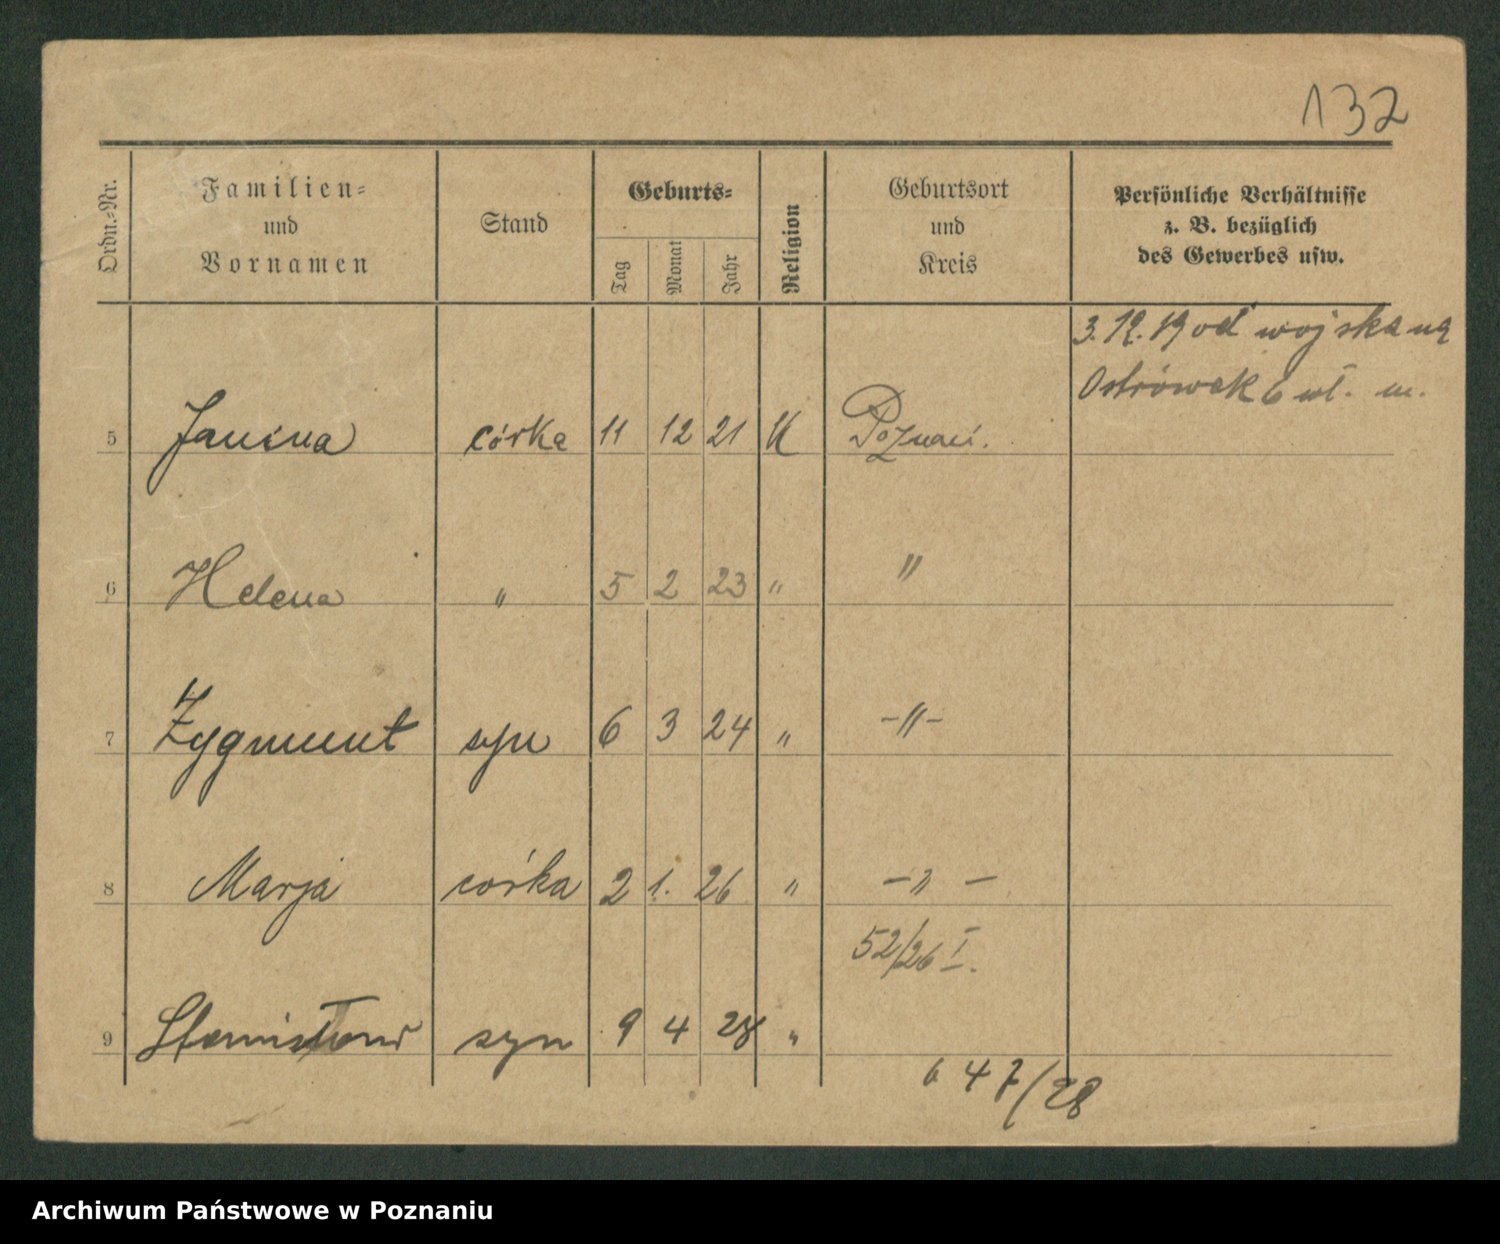 132
Ordn.-Nr.
Familien-
und
Vornamen
Stand
Geburts-
Tag
Monat
Jahr
Religion
Geburtsort
und
Kreis
Persönliche Verhältnisse
z. B. bezüglich
des Gewerbes usw.
3.12.19 od wojska na
Ostrówek 6 wł. m.
5 Janina córka 11 12 21 K Poznań.
6 Helena " 5 2 23 " "
7 Zygmunt syn 6 3 24 " -"-
8 Marja córka 2 1. 26 " -"-
52/26 I.
9 Stanisław syn 9 4 28 "
647/28
Archiwum Państwowe w Poznaniu